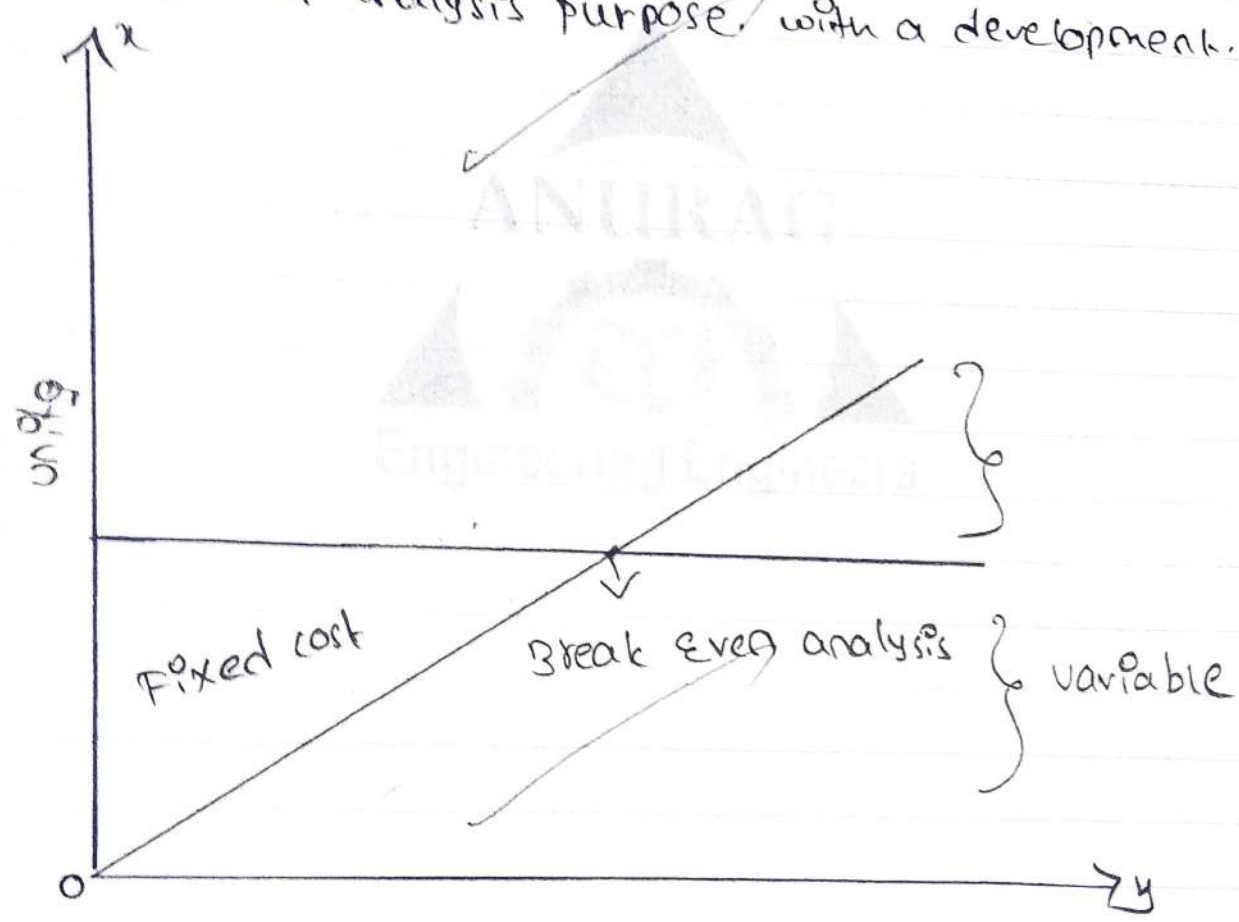 analysis purpose. with a development.
x
units
ANURAG
Engineering Engineers
Fixed cost
Break Even analysis
variable
0
y